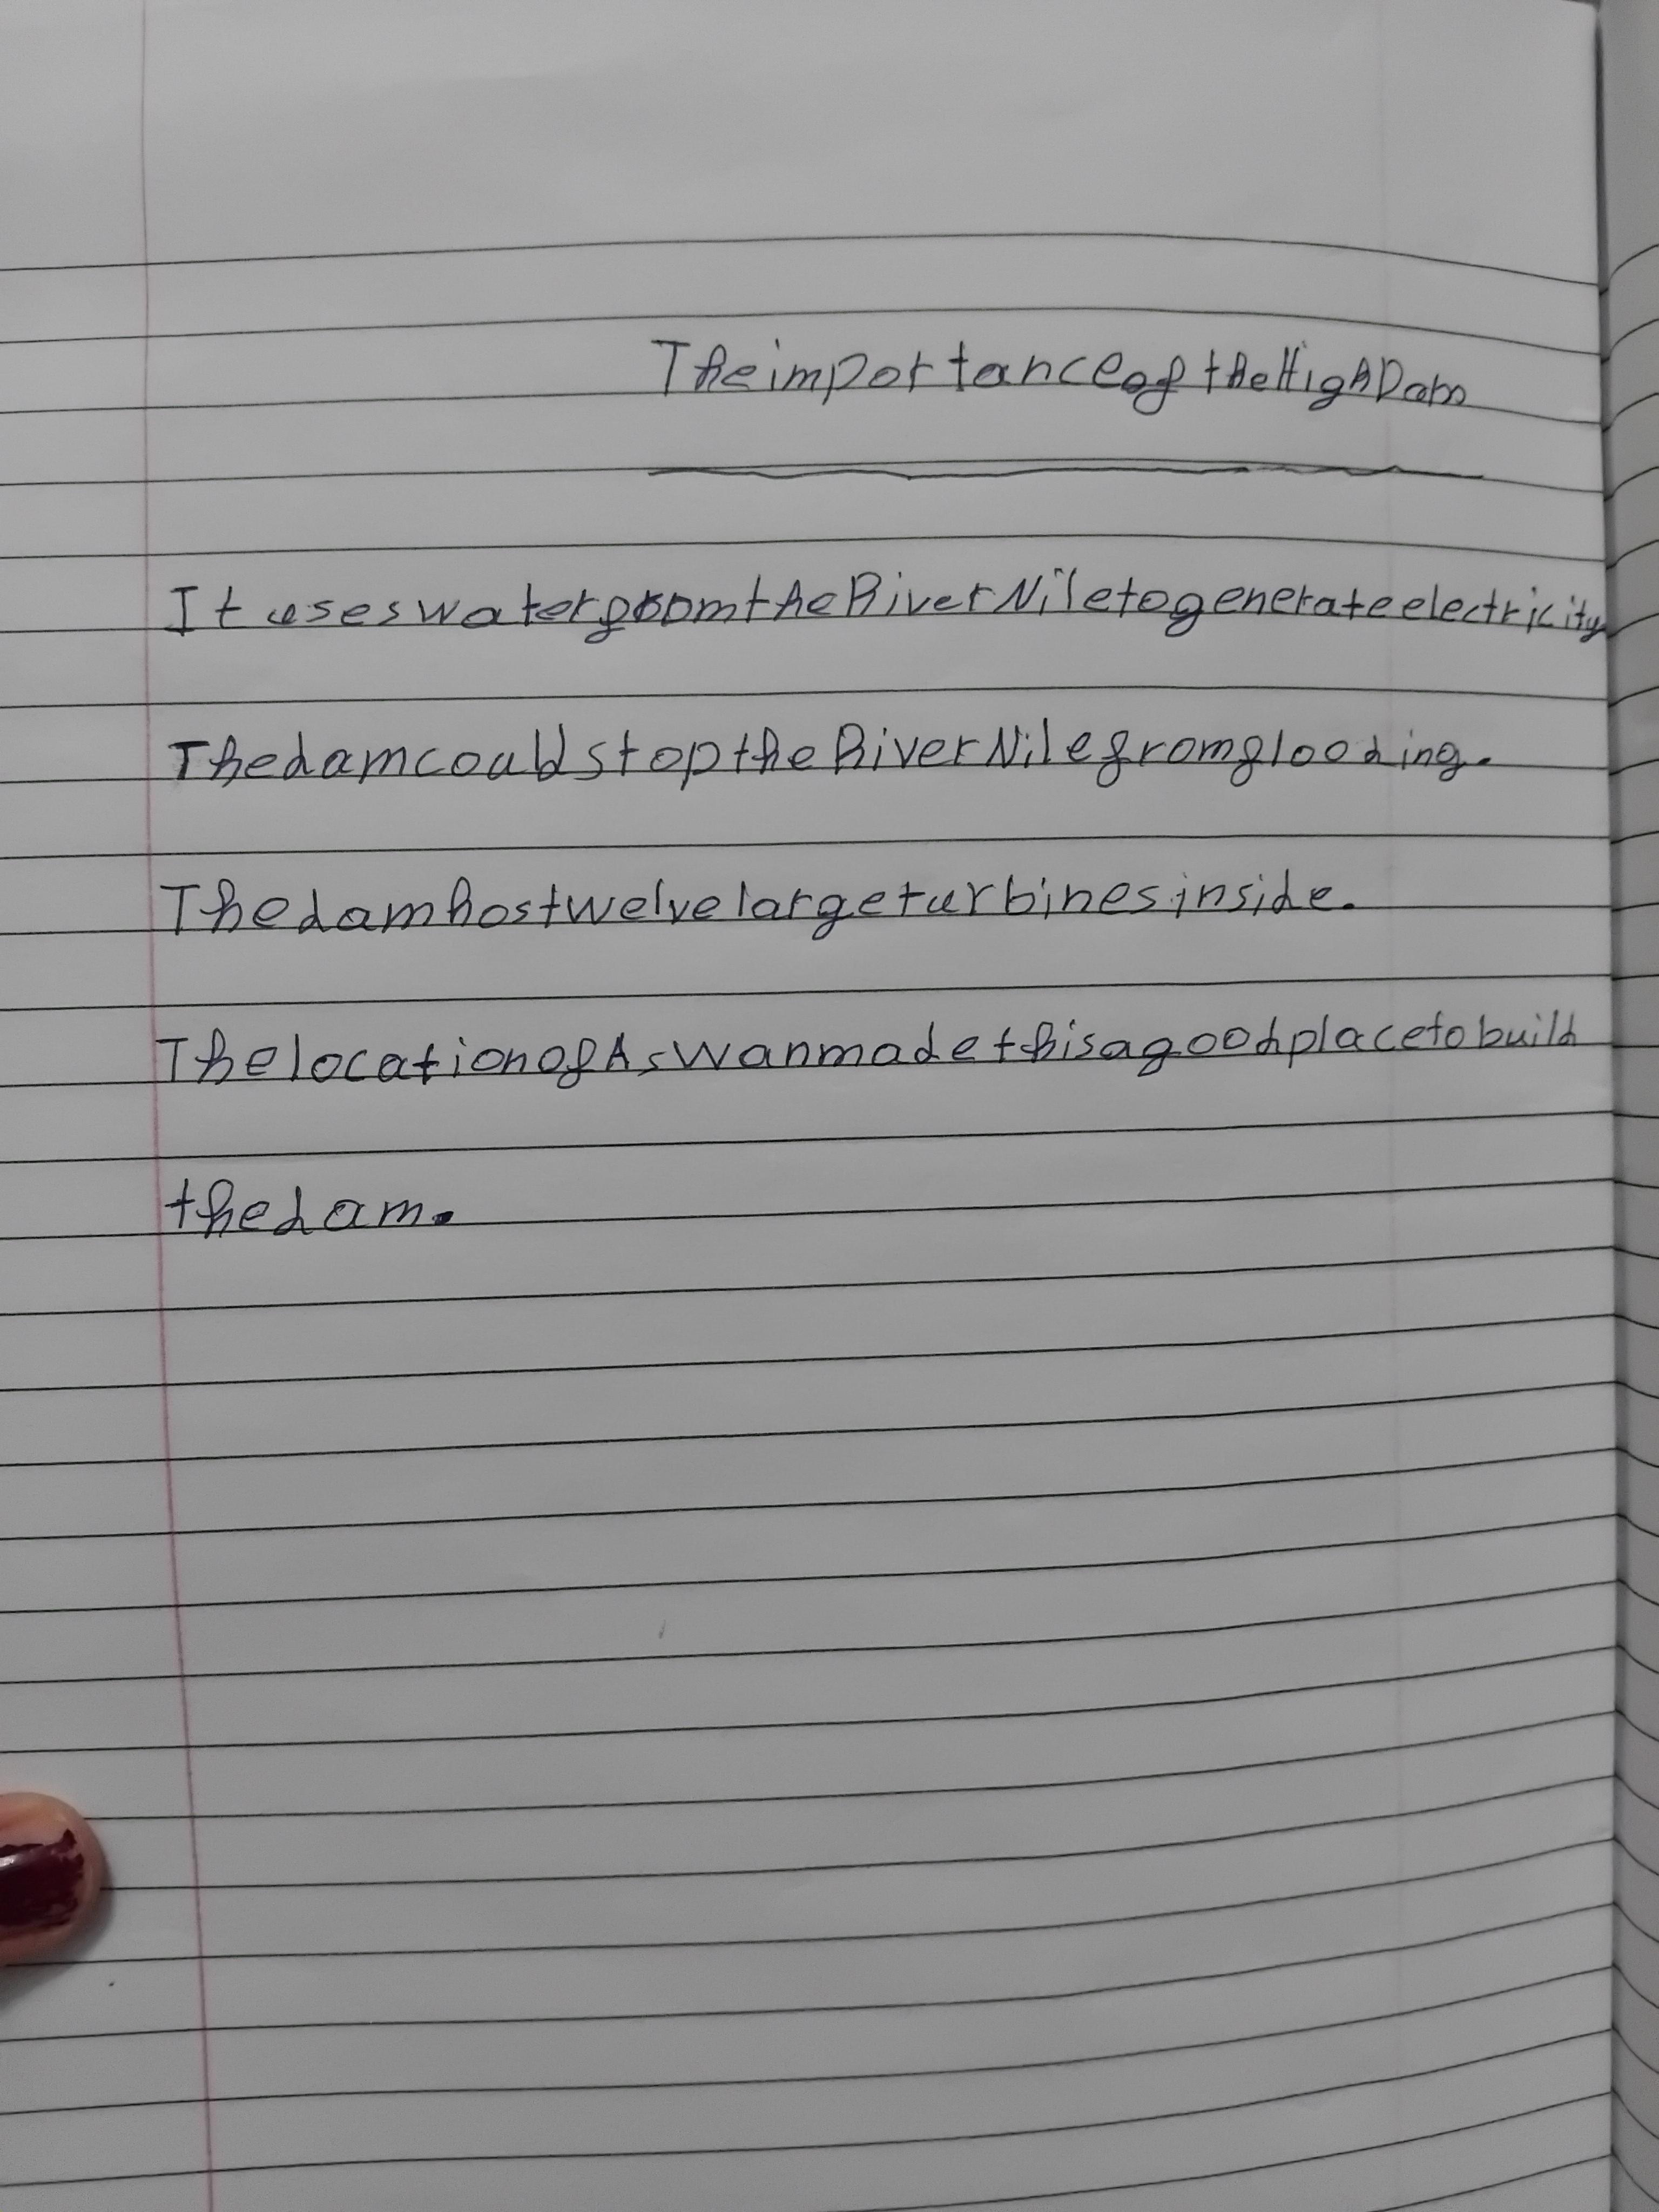 The importance of the High Dam
It uses water from the River Nile to generate electricity
The dam could stop the River Nile from flooding.
The dam has twelve large turbines inside.
The location of Aswan made this a good place to build
the dam.